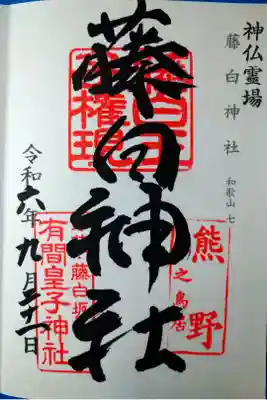 神仏霊場
藤白神社 和歌山 七
藤白神社
熊野
之鳥居
藤白坂
有間皇子神社
令和六年九月二十一日